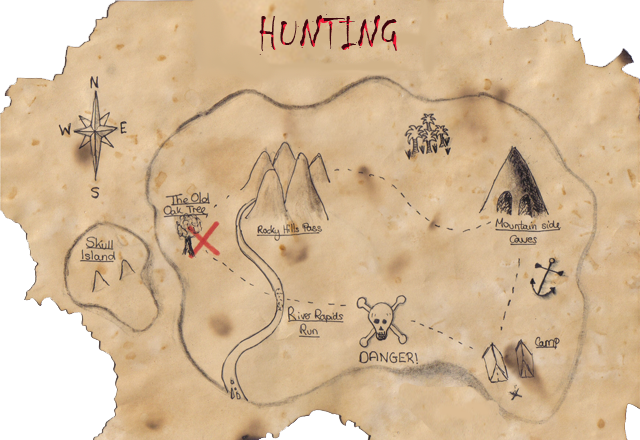 HUNTING
N
W E
S
The Old
Oak Tree
Rocky Hills Pass
Mountain side
Caves
Skull
Island
River Rapids
Run
DANGER!
Camp